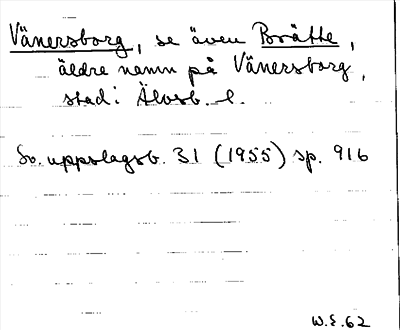 Vänersborg, se även Brätte,
äldre namn på Vänersborg,
stad i Älvsb. l.
Sv. uppslagsb. 31 (1955) sp. 916
W.E. 62